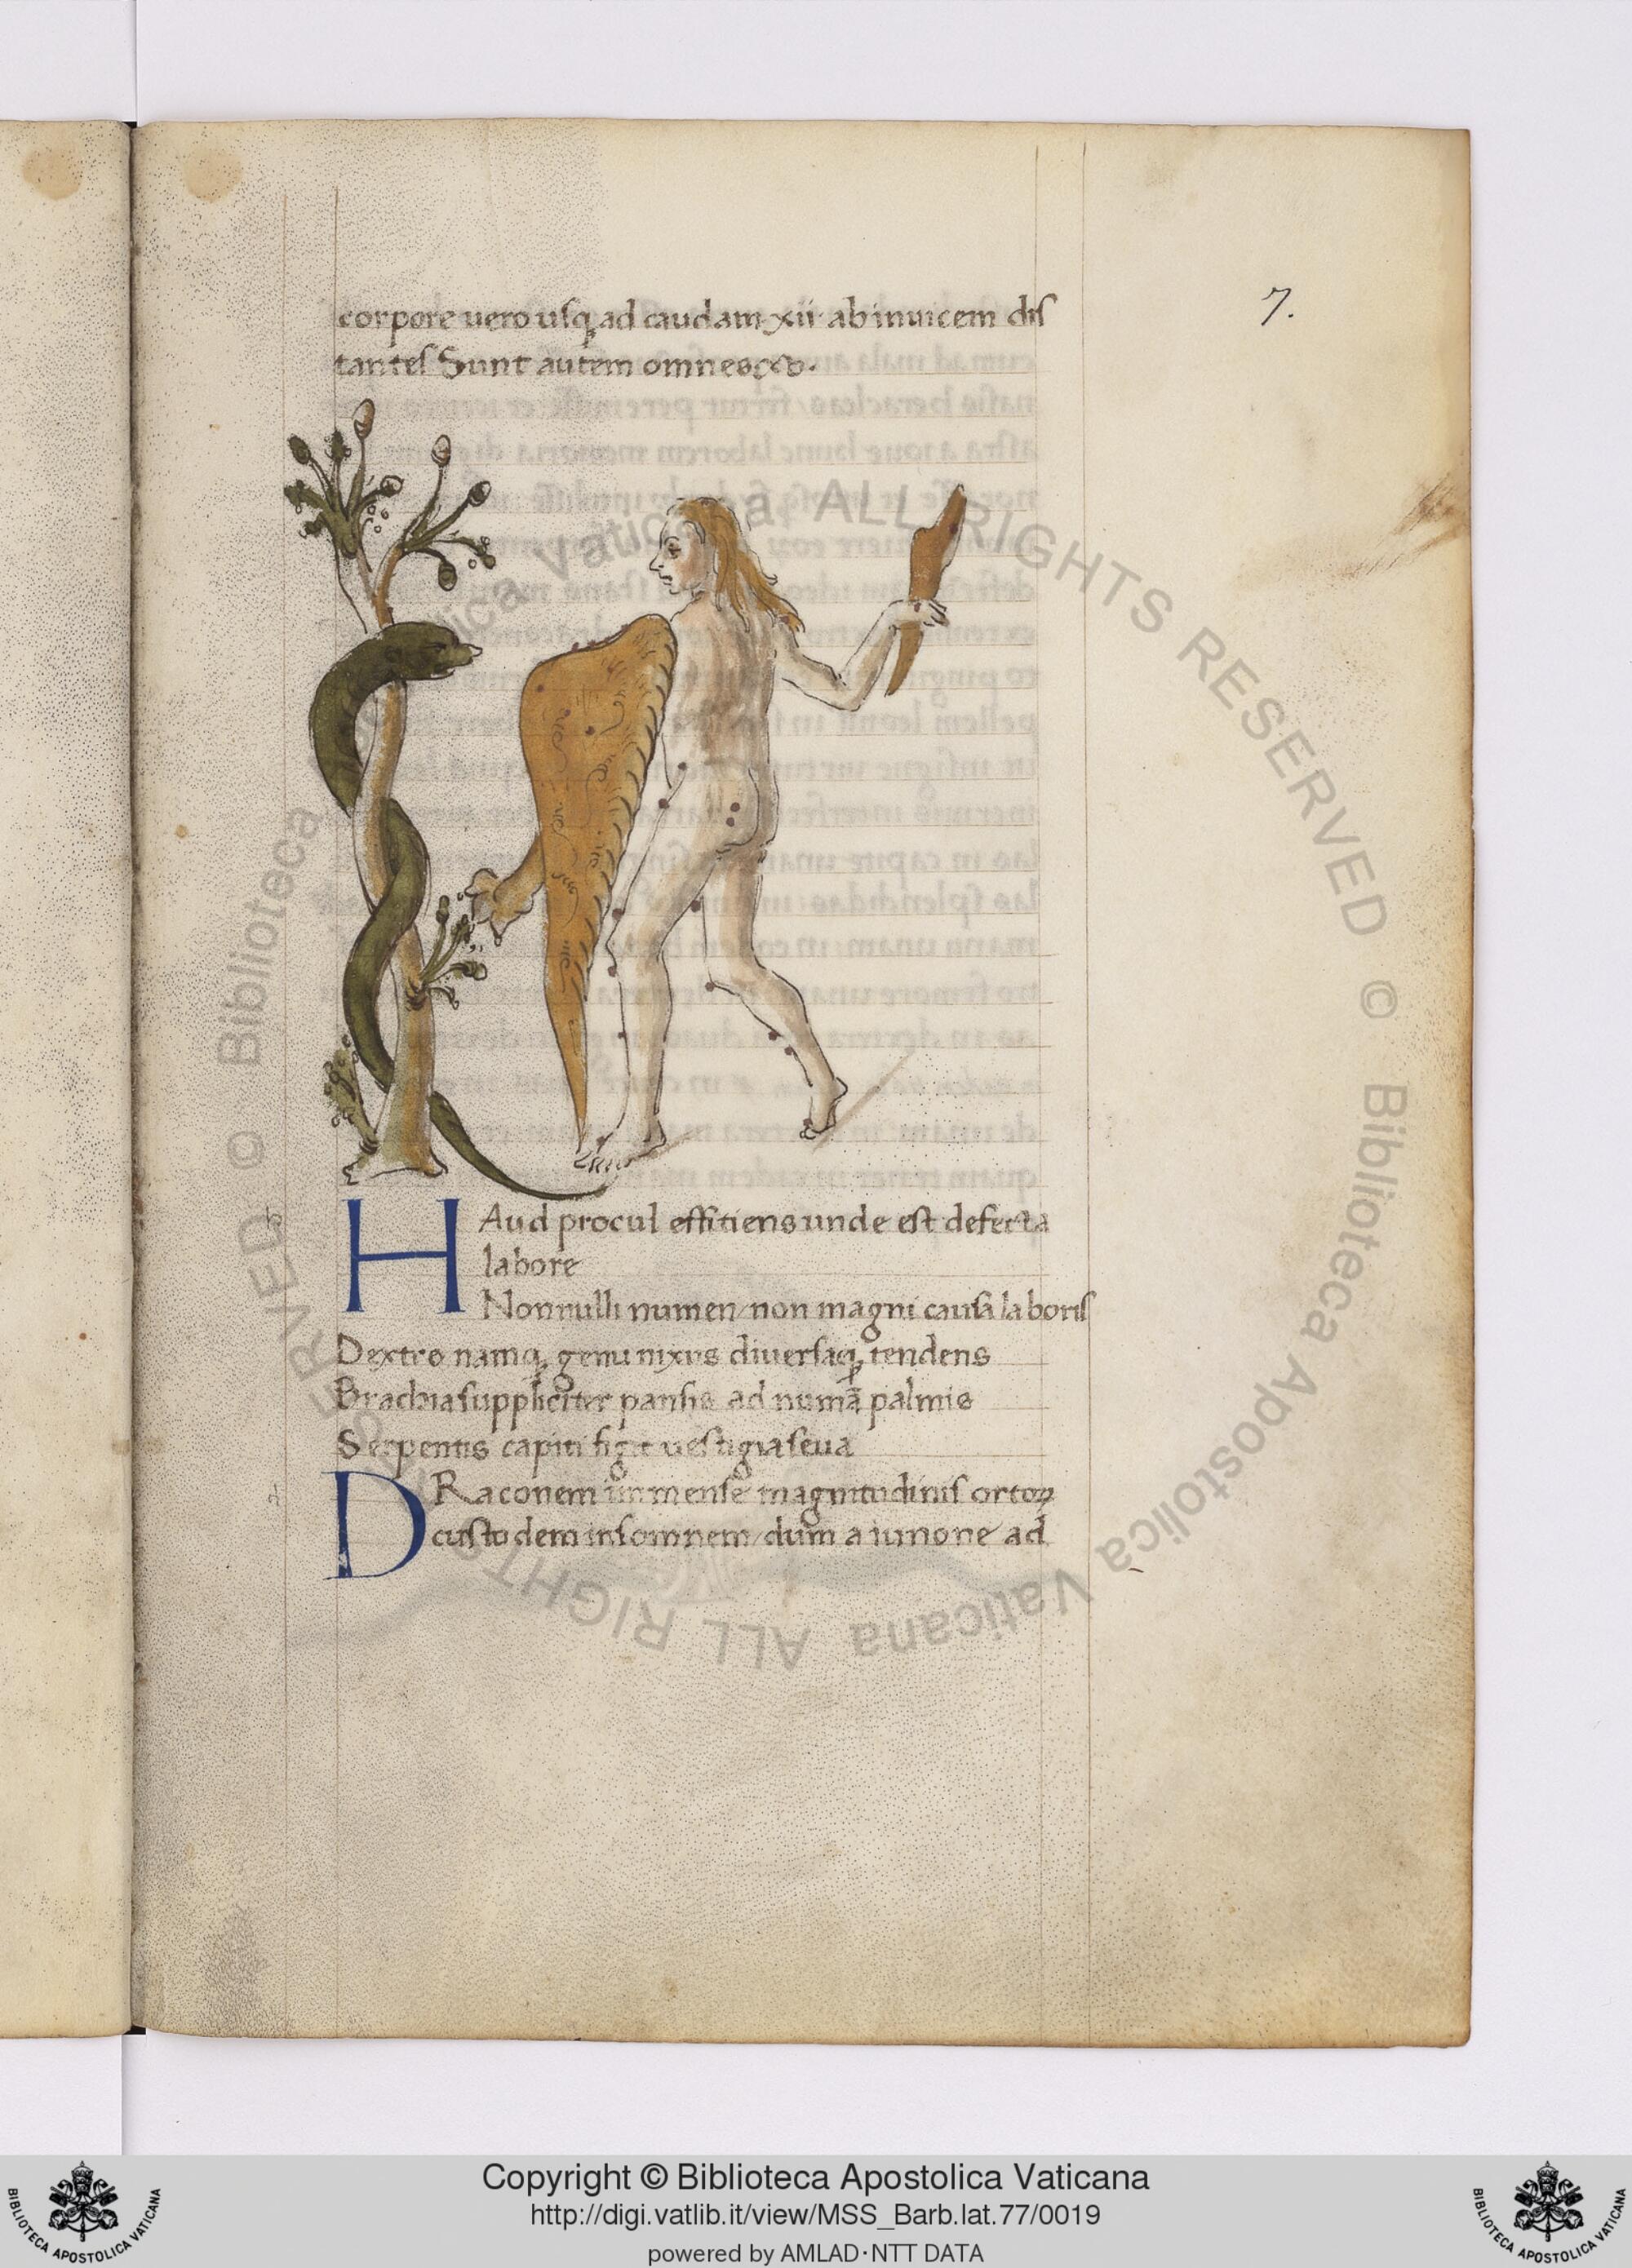 7.
corpore uero uſq; ad caudam xii ab inuicem diſ
tanteſ Sunt autem omnes
HAud procul effitiens unde eſt defecta
labore
Nonnulli numen/non magni cauſa laboriſ
Dextro namq; genu nixus diuerſaq; tendens
Brachia ſuppliciter panſis ad numā palmis
Serpentis capiti figit ueſtigia ſeua
DRaconem immenſe magnitudiniſ
cuſtodem inſomnem/dum a iunone ad
© Biblioteca Apostolica Vaticana ALL RIGHTS RESERVED © Biblioteca Apostolica Vaticana ALL RIGHTS RESERVED
Copyright © Biblioteca Apostolica Vaticana
http://digi.vatlib.it/view/MSS_Barb.lat.77/0019
powered by AMLAD·NTT DATA
BIBLIOTECA APOSTOLICA VATICANA
BIBLIOTECA APOSTOLICA VATICANA